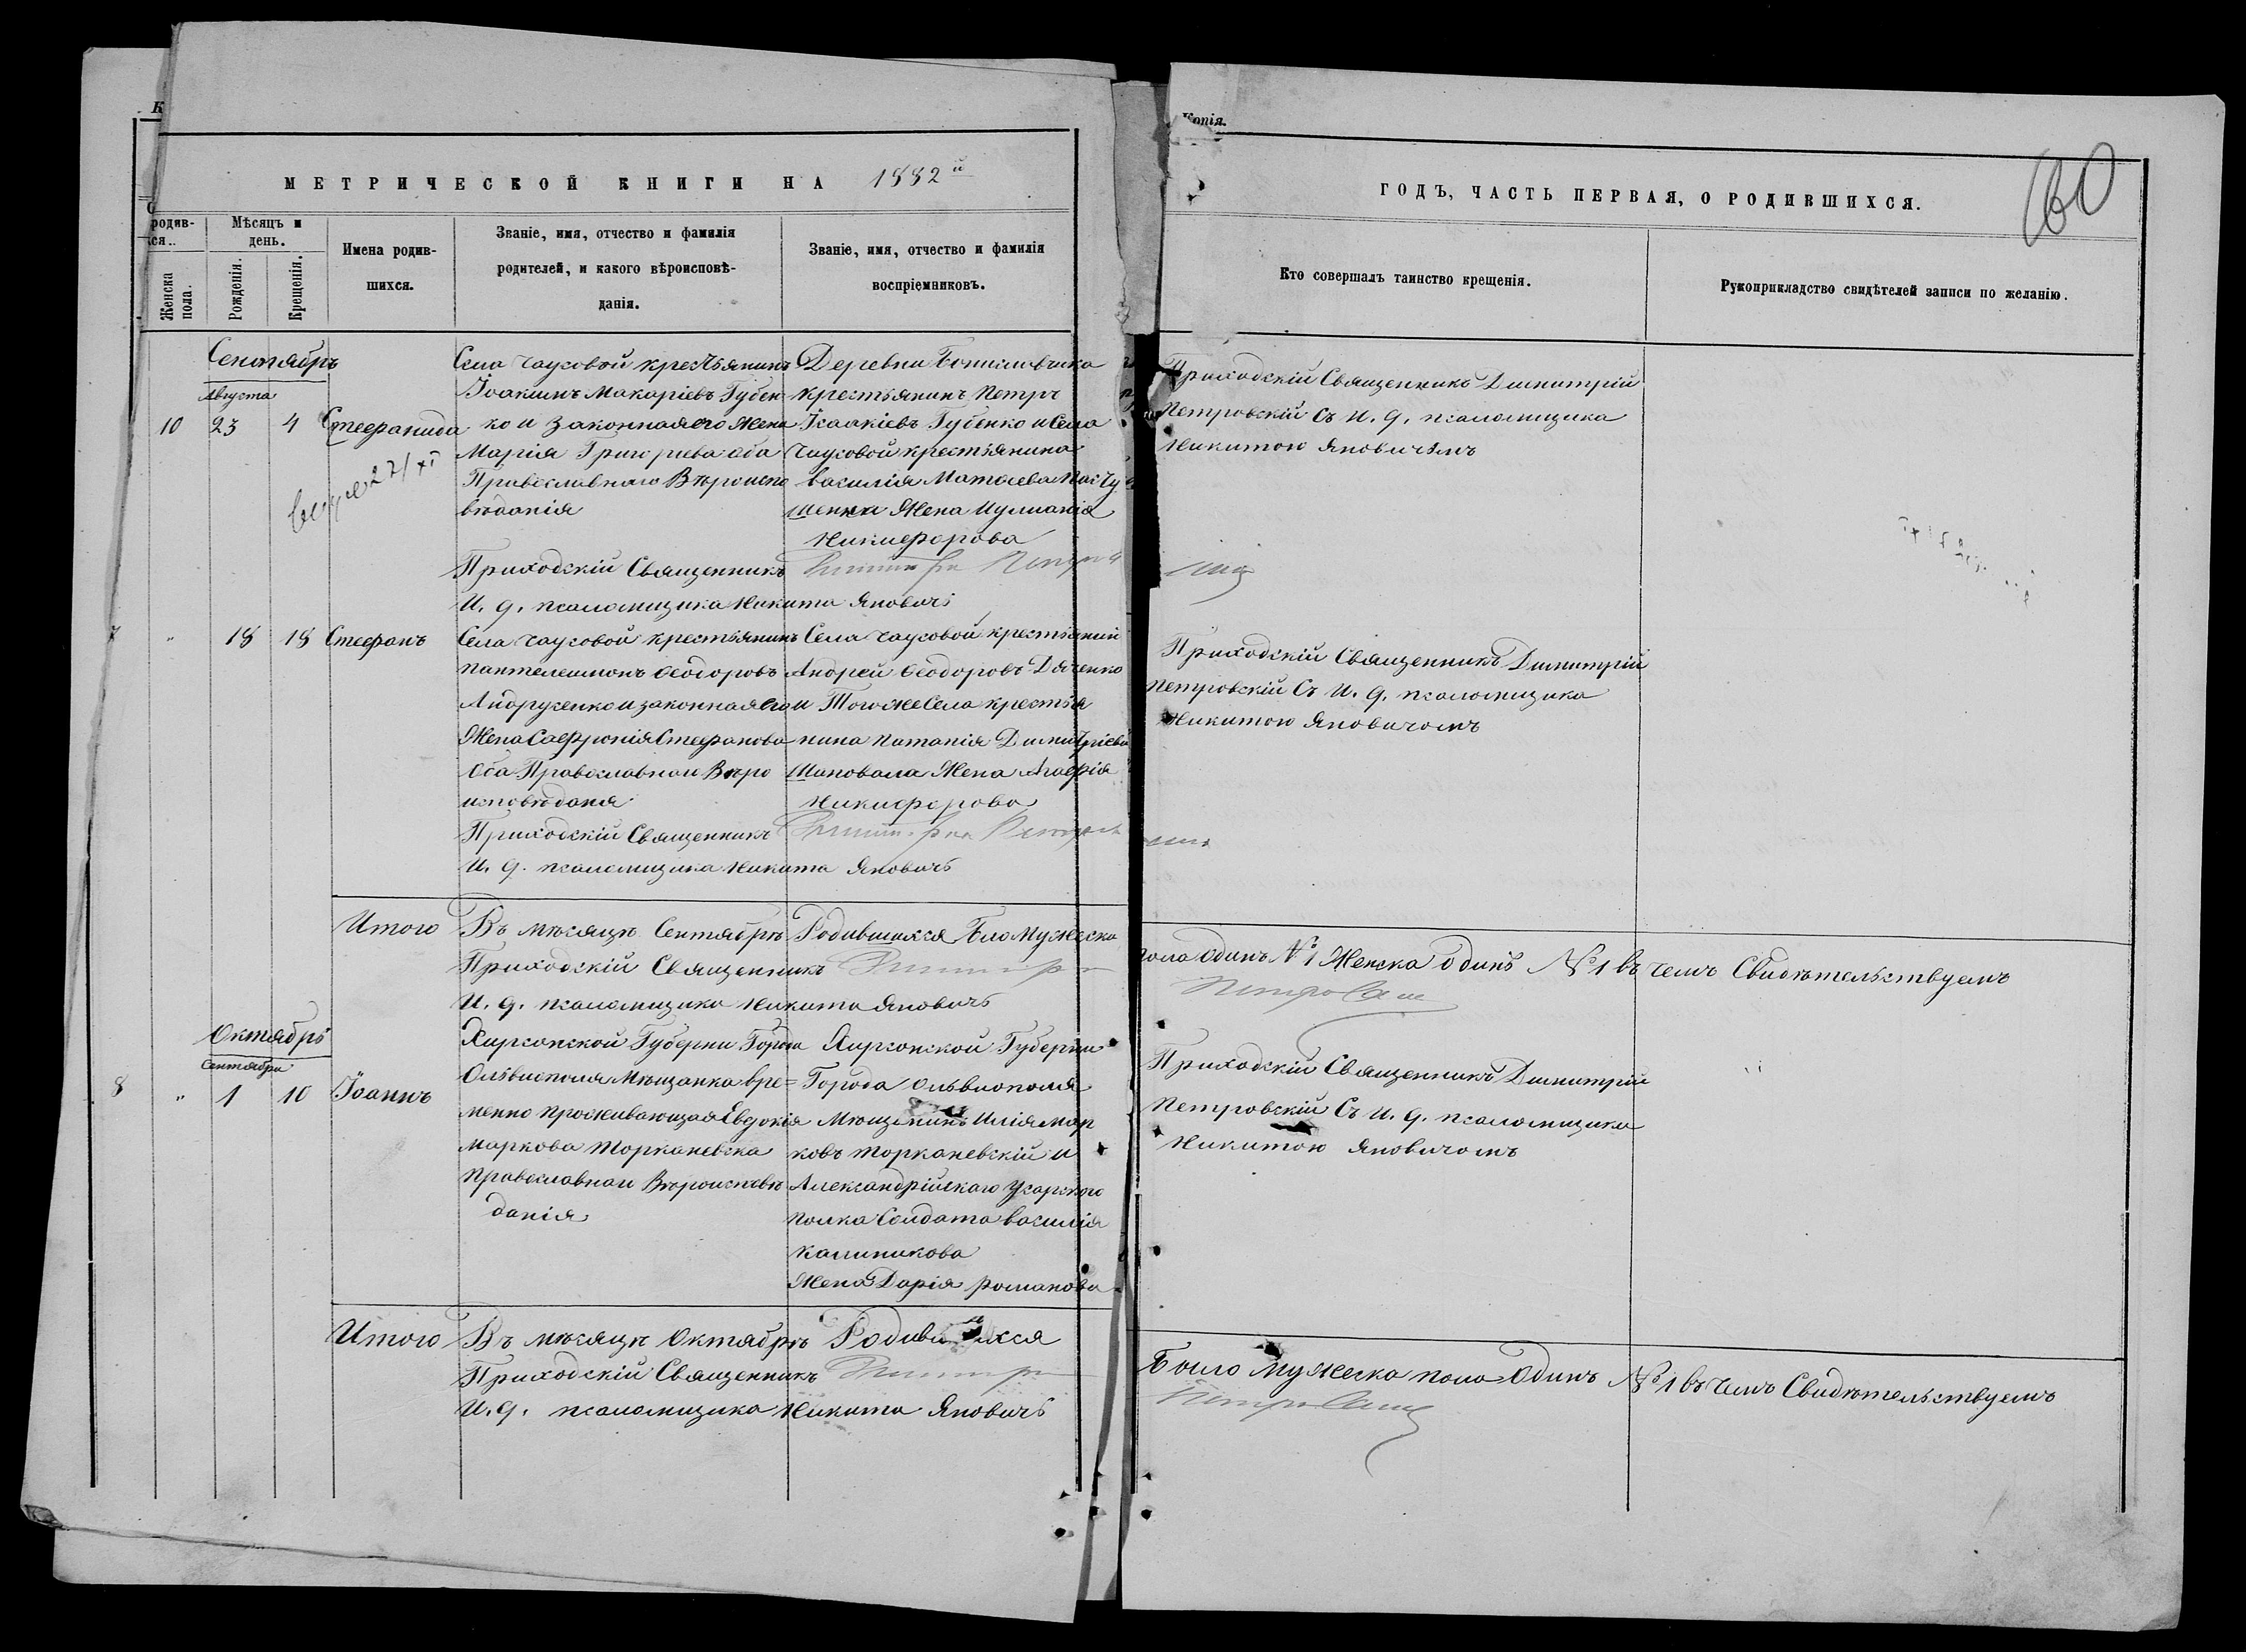 Копія.
МЕТРИЧЕСКОЙ КНИГИ НА 1882й
ГОДЪ, ЧАСТЬ ПЕРВАЯ, О РОДИВШИХСЯ.
160
родив-
ся..
Женска
пола.
Мѣсяцъ и
день.
Рожденія.
Крещенія.
Имена родив-
шихся.
Званіе, имя, отчество и фамилія
родителей, и какого вѣроисповѣ-
данія.
Званіе, имя, отчество и фамилія
воспріемниковъ.
Кто совершалъ таинство крещенія.
Рукоприкладство свидѣтелей записи по желанію.
Сентябрь
Августа
10 23 4 Стефанида
27/XI
Села Чаусовой крестьянинъ
Іоакимъ Макаріевъ Губен-
ко и законная его Жена
Марія Григорьева оба
Православнаго Вѣроиспо
вѣданія
Деревни
крестьянинъ Петръ
Ісаакіевъ Губенко и Села
Чаусовой крестьянина
Василія Матѳеева
шенка Жена Иулианія
Никифорова
Приходскій Священникъ
И. д. псаломщика Никита Яновичъ
Приходскій Священникъ Димитрій
Петровскій Съ И. д. псаломщика
Никитою Яновичемъ
7 " 18 18 Стефанъ
Села Чаусовой крестьянинъ
Пантелеимонъ Ѳеодоровъ
Андрусенко и законная его
Жена Софронія Стефанова
Оба Православнаи Вѣро
исповѣдания
Села Чаусовой крестьянин
Андрей Ѳеодоровъ Дяченко
и Того же Села крестья
нина Потапія Димитріева
Шаповала Жена Агафія
Никифорова
Приходскій Священникъ
И. д. псаломщика Никита Яновичъ
Приходскій Священникъ Димитрій
Петровскій Съ И. д. псаломщика
Никитою Яновичомъ
Итого Въ мѣсяцѣ Сентябрѣ Родившихся Было Мужеска
пола Одинъ №1 Женска одинъ №1 въ чемъ Свидѣтельствуемъ
Приходскій Священникъ
И. д. псаломщика Никита Яновичъ
Октябрь
Сентября
8 " 1 10 Іоаннъ
Херсонской Губерни Города
Ольвиополя Мѣщанка вре=
менно проживающая Евдокія
Маркова Торканевска
Православнаи Вѣроисповѣ
данія
Херсонской Губерніи
Города Ольвиополя
Мѣщенинъ Илія Мар
ковъ Торканевскій и
Александрійскаго Усарского
полка Солдата Василія
Калиникова
Жена Дарія Романова
Приходскій Священникъ Димитрій
Петровскій Съ И. д. псаломщика
Никитою Яновичомъ
Итого Въ мѣсяцѣ Октябрѣ Родившихся
Было мужеска пола Одинъ №1 въ чемъ Свидѣтельствуемъ
Приходскій Священникъ
И. д. псаломщика Никита Яновичъ